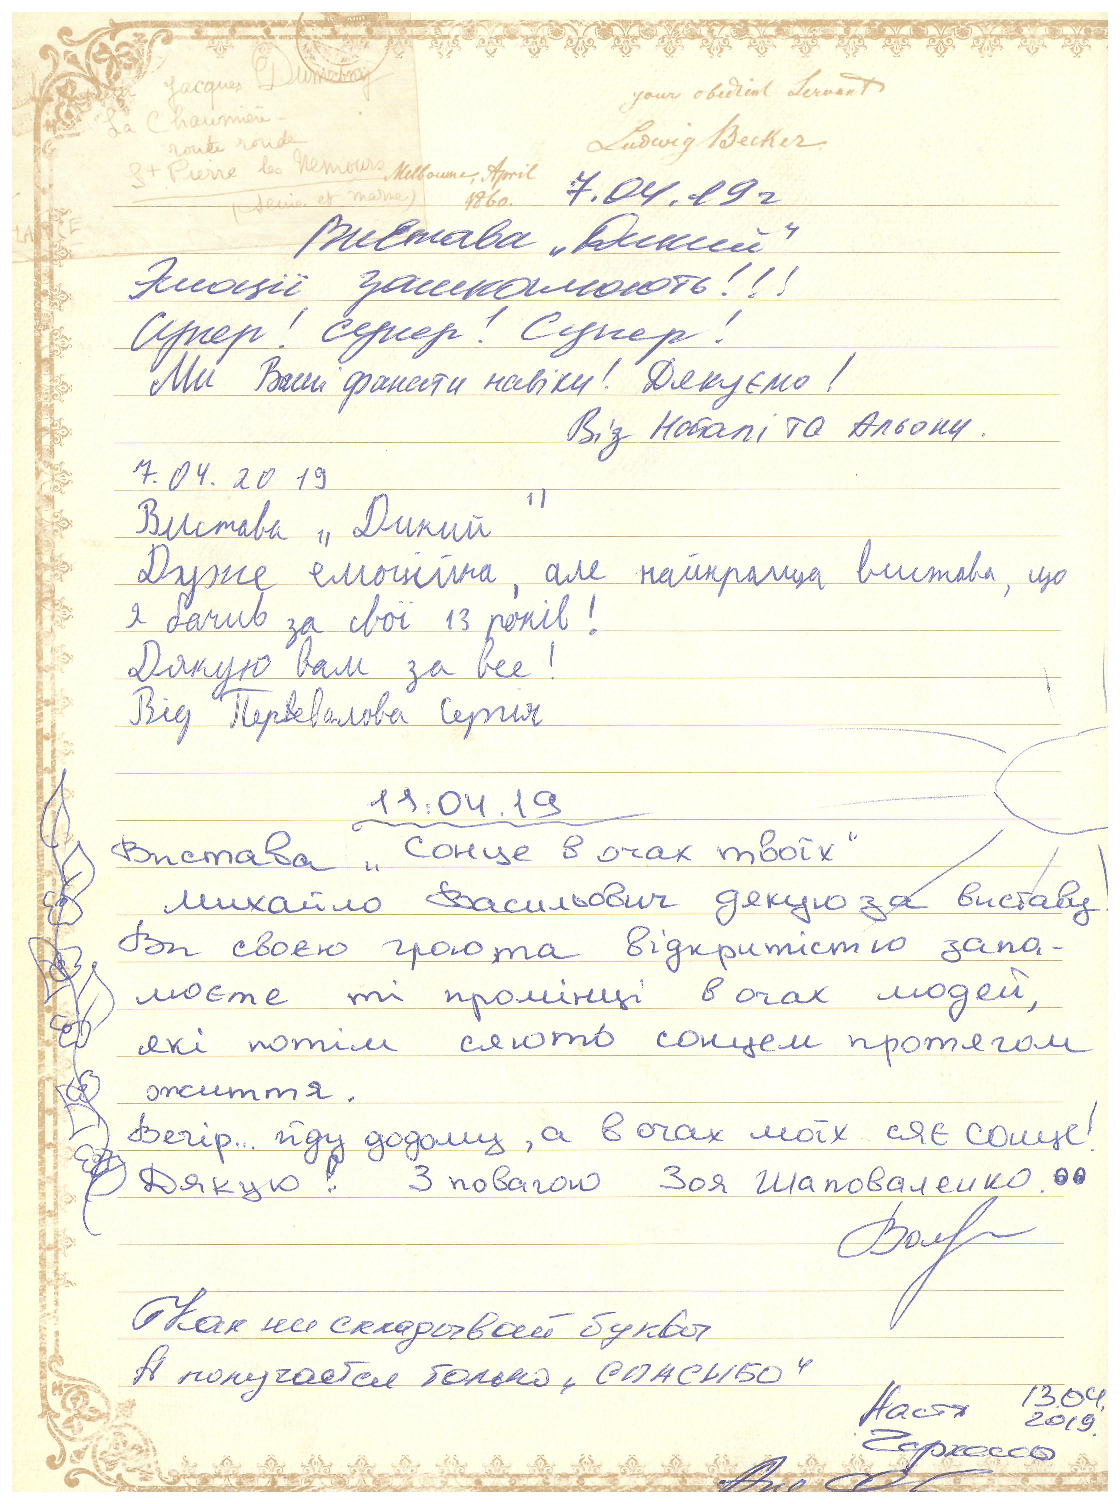 Jacques Dumesny
La Chaumière
route ronde
St Pierre les Nemours
(Seine et marne)
your obedient Servant
Ludwig Becker
Melbourne, April
1860.
7.04.19г
Вистава „Дикий“
Эмоції зашкалюють!!!
Супер! супер! Супер!
Ми Ваші фанати навіки! Дякуємо!
Від Наталі та Альони.
7.04.2019
Вистава „Дикий"
Дуже емоційна, але найкраща вистава, що
я бачив за свої 13 років!
Дякую вам за все!
Від Перевалова Сергія
11.04.19
Вистава „Сонце в очах твоїх“
Михайло Васильович дякую за виставу!
Ви своєю грою та відкритістю запа-
люєте ті промінці в очах людей,
які потім сяють сонцем протягом
життя.
Вечір... йду додому, а в очах моїх сяє сонце!
Дякую! З повагою Зоя Шаповаленко.
Как ни складывай буквы
А получается только „СПАСИБО“
Настя 13.04.
2019.
Черкассы